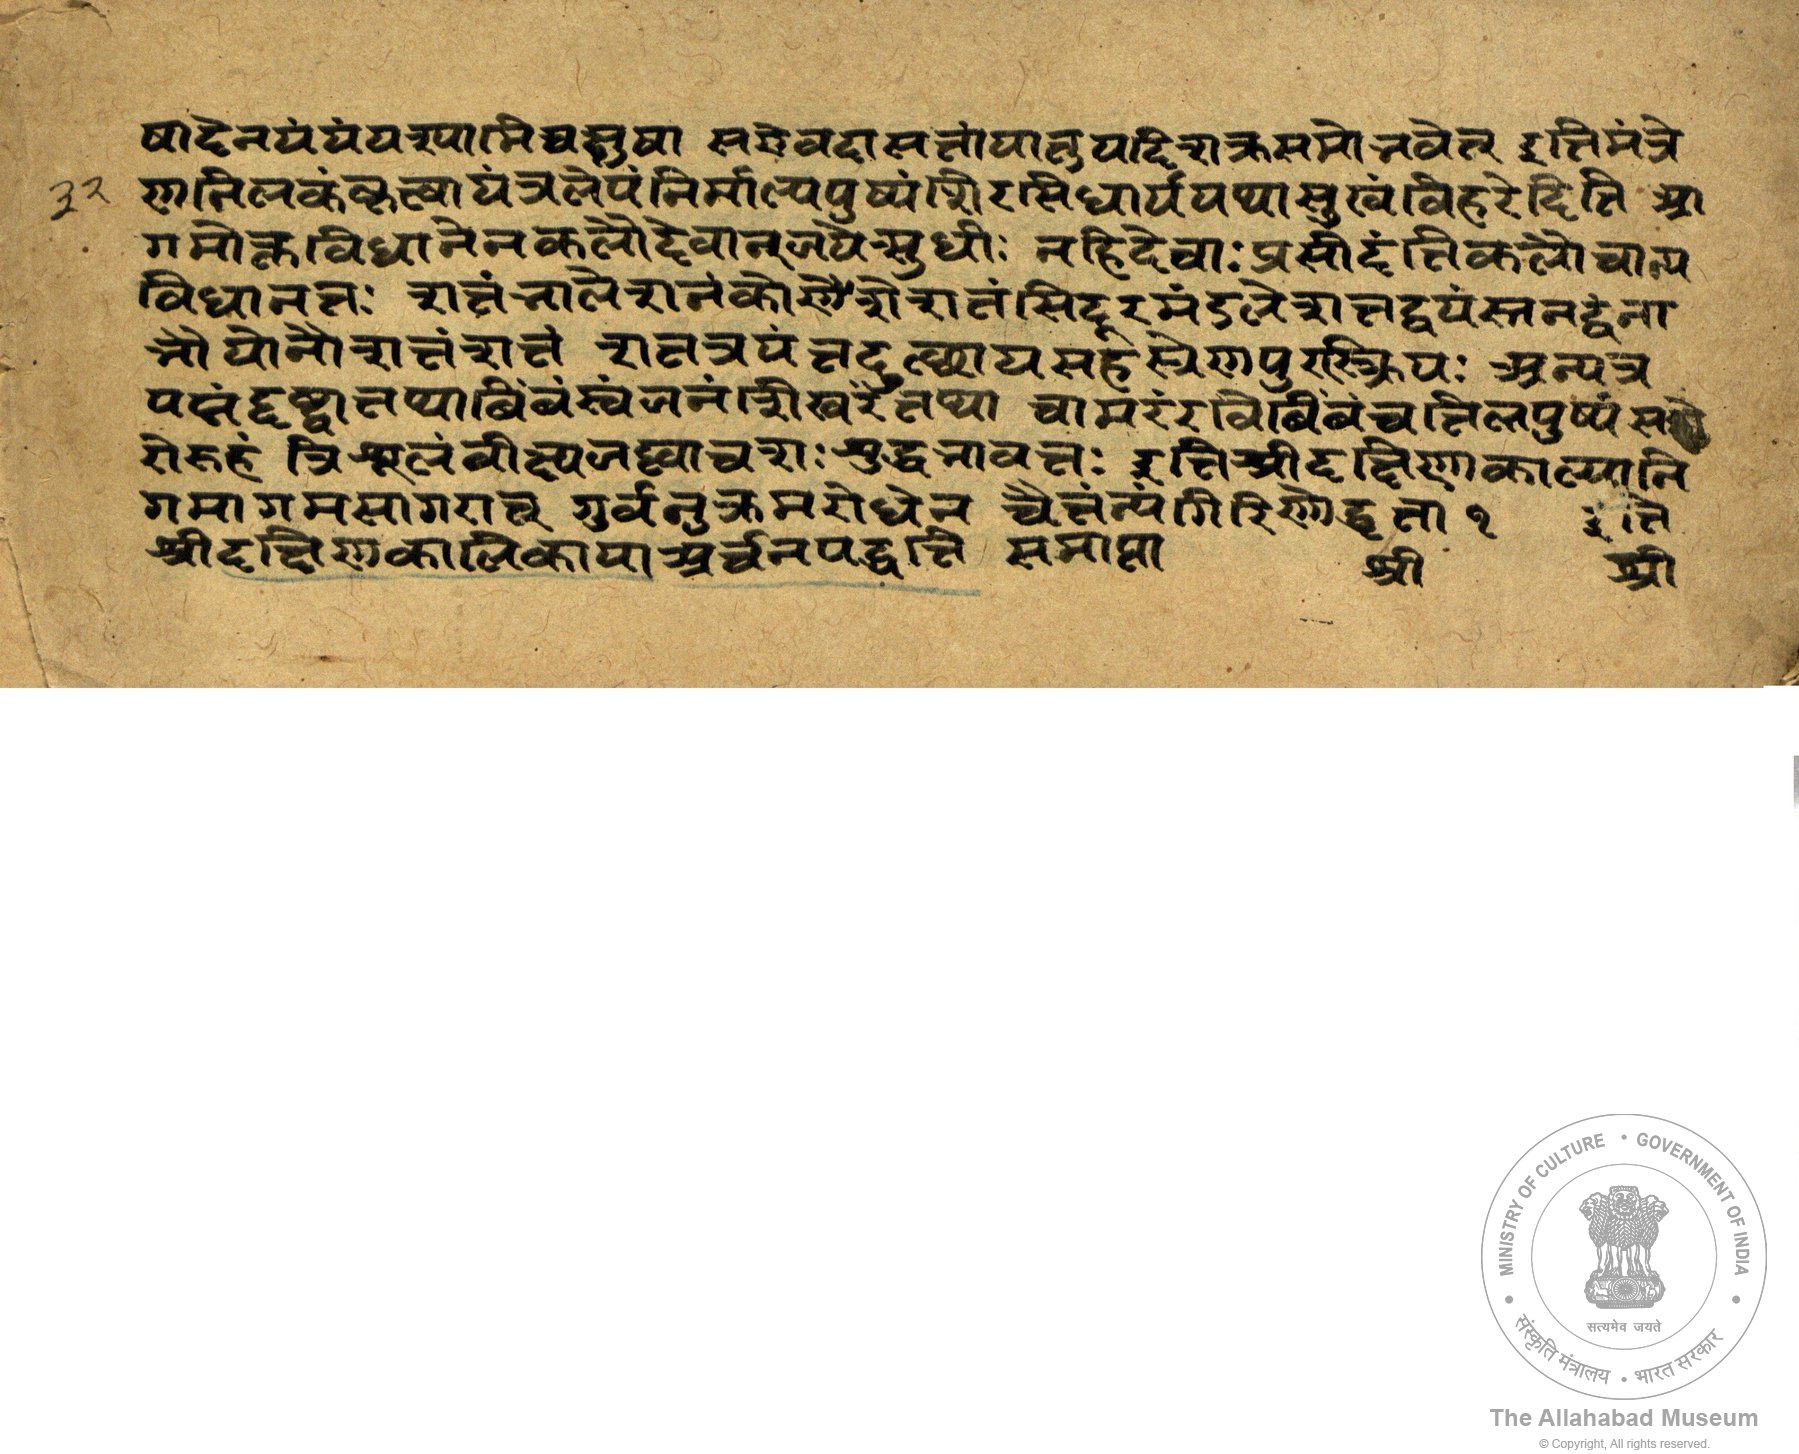 षादेनयंयंयश्पामिचक्षुषा सएवदासतांयातुयदिशक्रसमोभवेत् इतिमंत्रे
३२
णतिलकंकृत्वायंत्रलेपंनिर्माल्यपुष्पंशिरसिधार्ययथासुखंविहरेदिति आ
गमोक्तविधानेनकलौदेवान्जपेसुधीः नहिदेवाःप्रसीदंतिकलौचान्य
विधानतः शतंभालेशतंकेशेशतंसिंदूरमंडलेशतद्वयंस्तनद्वंना
भौयोनौशतंशतं शतत्रयंतदुत्थायसहस्रेणपुरस्क्रियः अन्यत्र
पद्मंदृष्ट्वातथाबिंबंखंजनंशिखरंतथा चामरंरविबिंबंचतिलपुष्पंस
रोरुहं त्रिशूलंवीक्ष्यजप्त्वाचशःशुद्धभावतः इतिश्रीदक्षिणाकाल्यानि
गमागमसागरात् गुर्वनुक्रमरोधेन चैतंन्यंगिरिणोद्धृता १ इति
श्रीदक्षिणकालिकायाअर्च्चनपद्धति समाप्ता श्री श्री
MINISTRY OF CULTURE • GOVERNMENT OF INDIA
सत्यमेव जयते
संस्कृति मंत्रालय • भारत सरकार
The Allahabad Museum
© Copyright, All rights reserved.